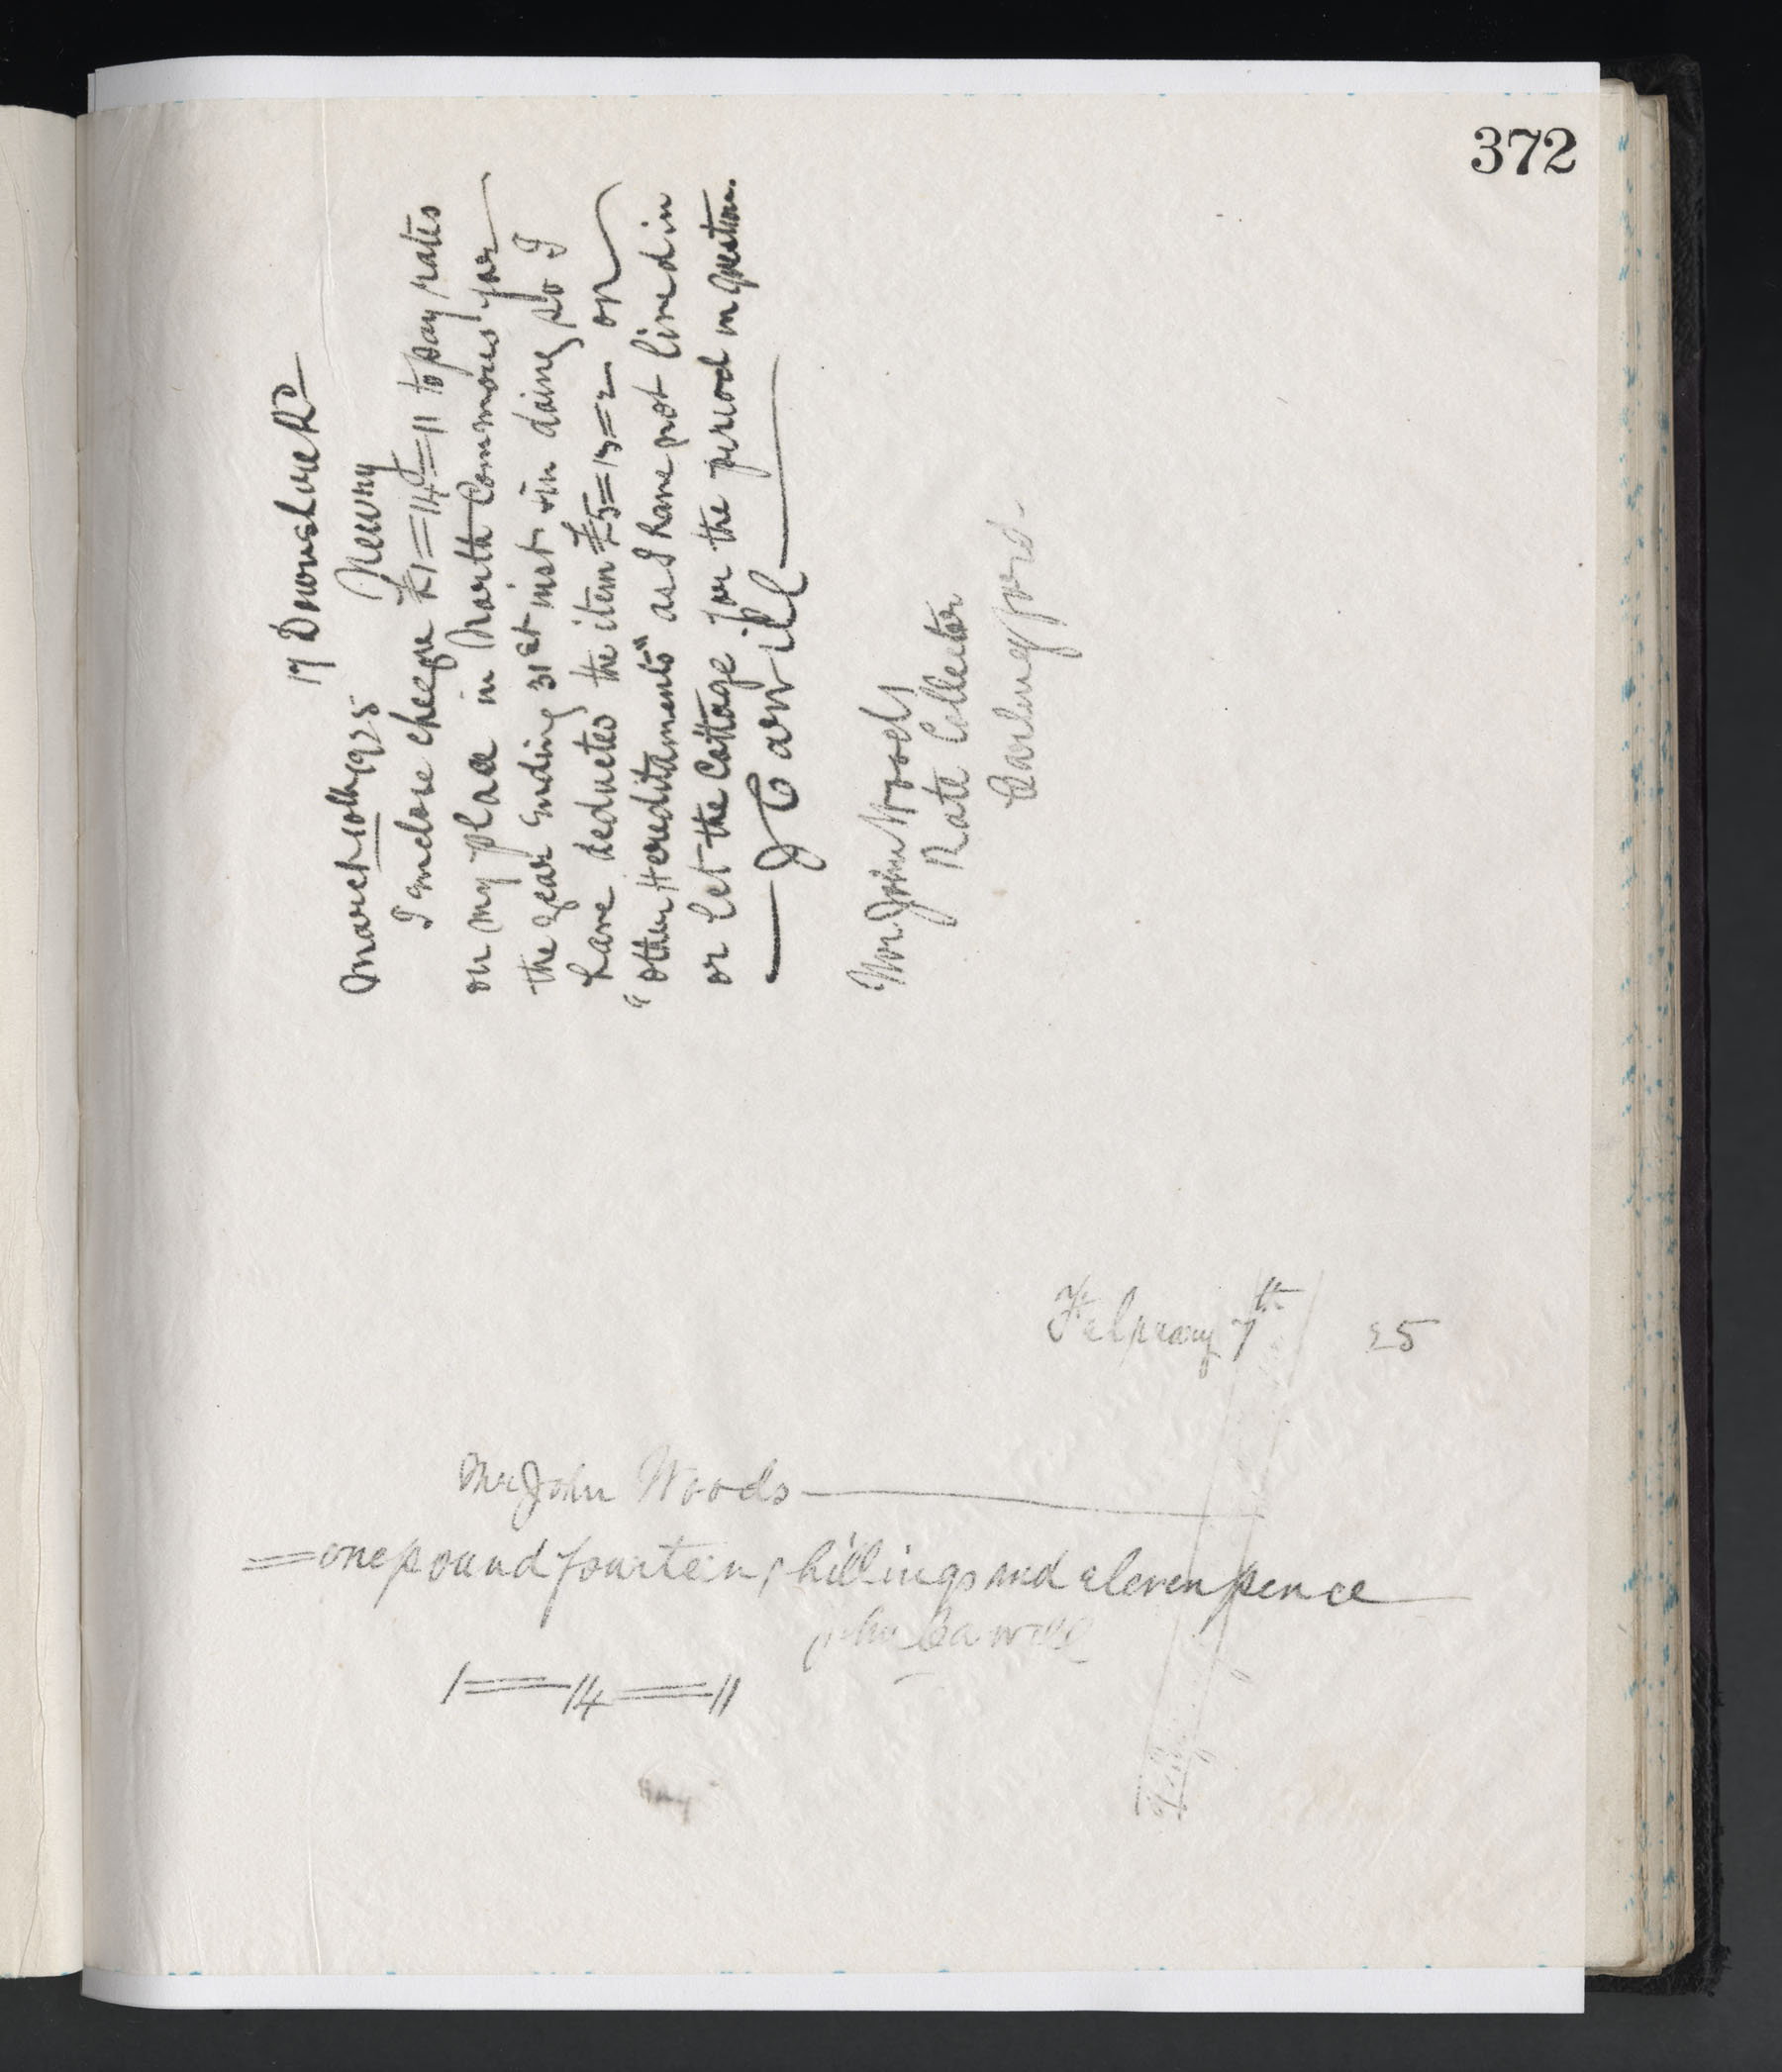 372
17 Downshire Rd
Newry
March 10th 1925
I enclose cheque £1=14=11 to pay rates
on my place in North Commons for
the year ending 31st inst. in doing so I
have deducted the item £5=13=2 on
"other Hereditaments" as I have not lived in
or let the Cottage for the period in question.
J Carvill
Mr John Woods
Rate Collector
Carlingford
February 7th 25
Mr John Woods
one pound fourteen shillings and eleven pence
John Carvill
1=14=11